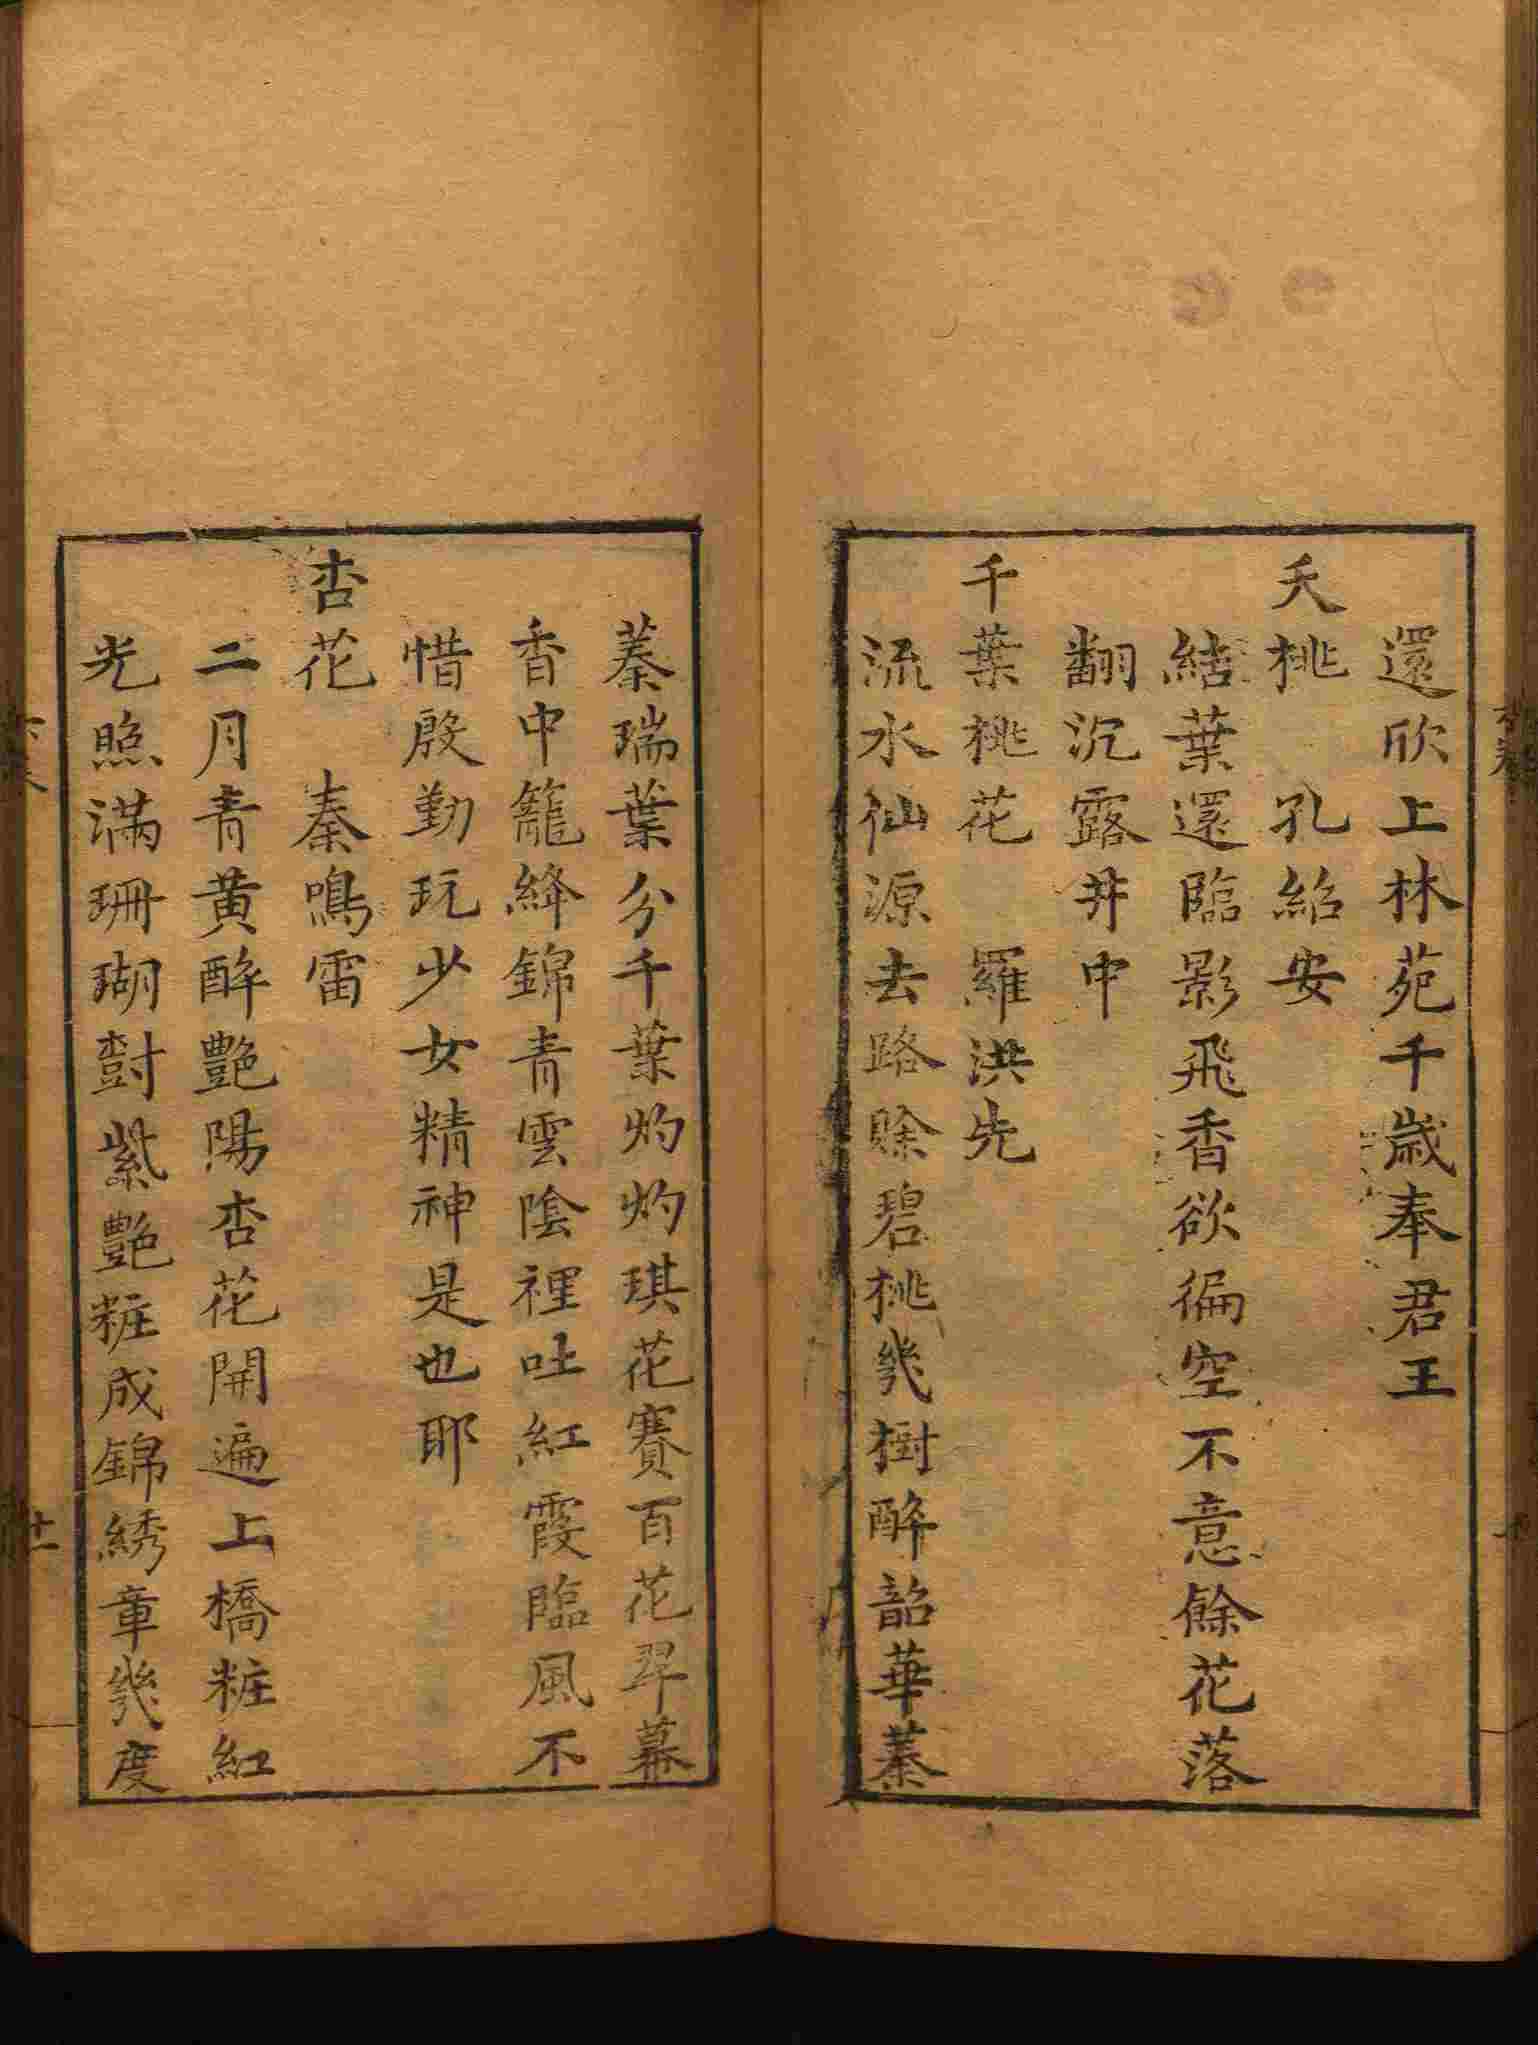 還欣上林苑千歲奉君王
夭桃　孔紹安
結葉還臨影飛香欲徧空不意餘花落
翻沉露井中
千葉桃花　羅洪先
流水仙源去路賒碧桃幾樹醉韶華蓁
蓁瑞葉分千葉灼灼琪花賽百花翠幕
香中籠絳錦青雲陰裡吐紅霞臨風不
惜殷勤玩少女精神是也耶
杏花　秦鳴雷
二月青黃醉艷陽杏花開遍上橋粧紅
光照滿珊瑚樹紫艷粧成錦綉章幾度
十一